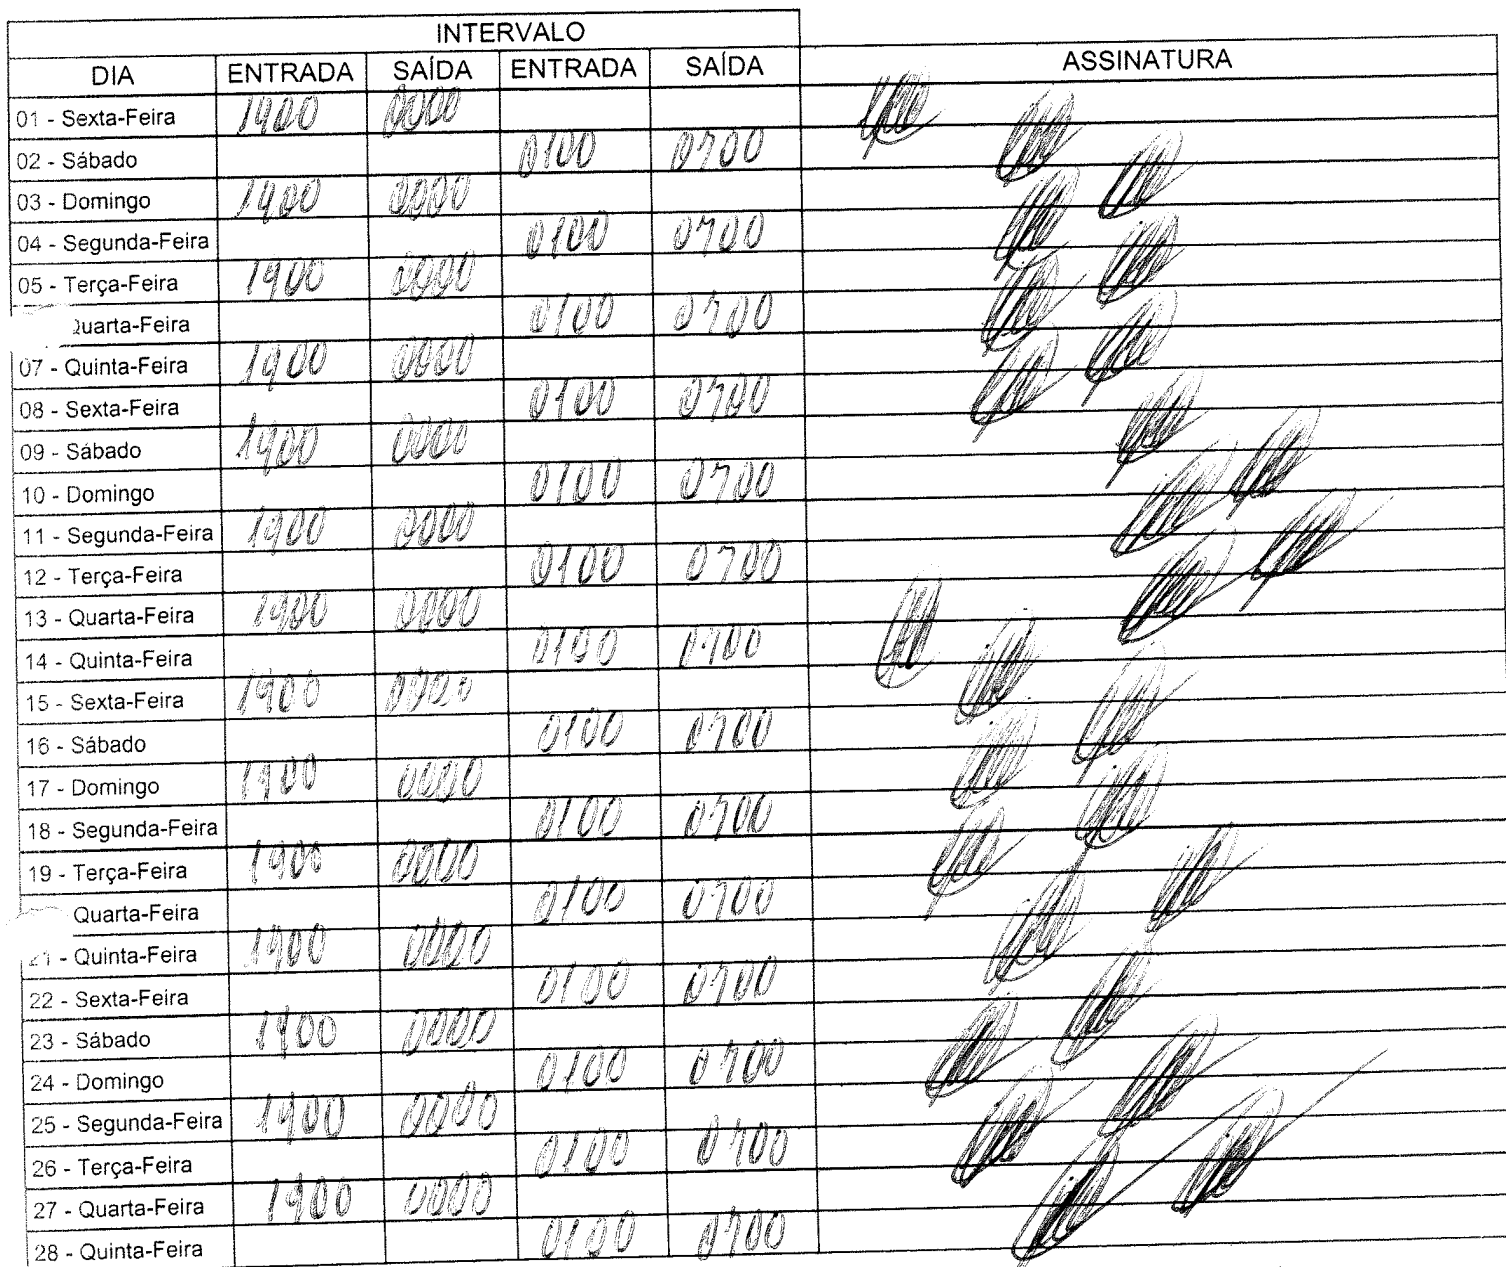 INTERVALO
DIA ENTRADA SAÍDA ENTRADA SAÍDA ASSINATURA
01 - Sexta-Feira 1900 0000
02 - Sábado 0100 0700
03 - Domingo 1900 0000
04 - Segunda-Feira 0100 0700
05 - Terça-Feira 1900 0000
Quarta-Feira 0100 0700
07 - Quinta-Feira 1900 0000
08 - Sexta-Feira 0100 0700
09 - Sábado 1900 0000
10 - Domingo 0100 0700
11 - Segunda-Feira 1900 0000
12 - Terça-Feira 0100 0700
13 - Quarta-Feira 1900 0000
14 - Quinta-Feira 0100 0700
15 - Sexta-Feira 1900 0000
16 - Sábado 0100 0700
17 - Domingo 1900 0000
18 - Segunda-Feira 0100 0700
19 - Terça-Feira 1900 0000
Quarta-Feira 0100 0700
21 - Quinta-Feira 1900 0000
22 - Sexta-Feira 0100 0700
23 - Sábado 1900 0000
24 - Domingo 0100 0700
25 - Segunda-Feira 1900 0000
26 - Terça-Feira 0100 0700
27 - Quarta-Feira 1900 0000
28 - Quinta-Feira 0100 0700